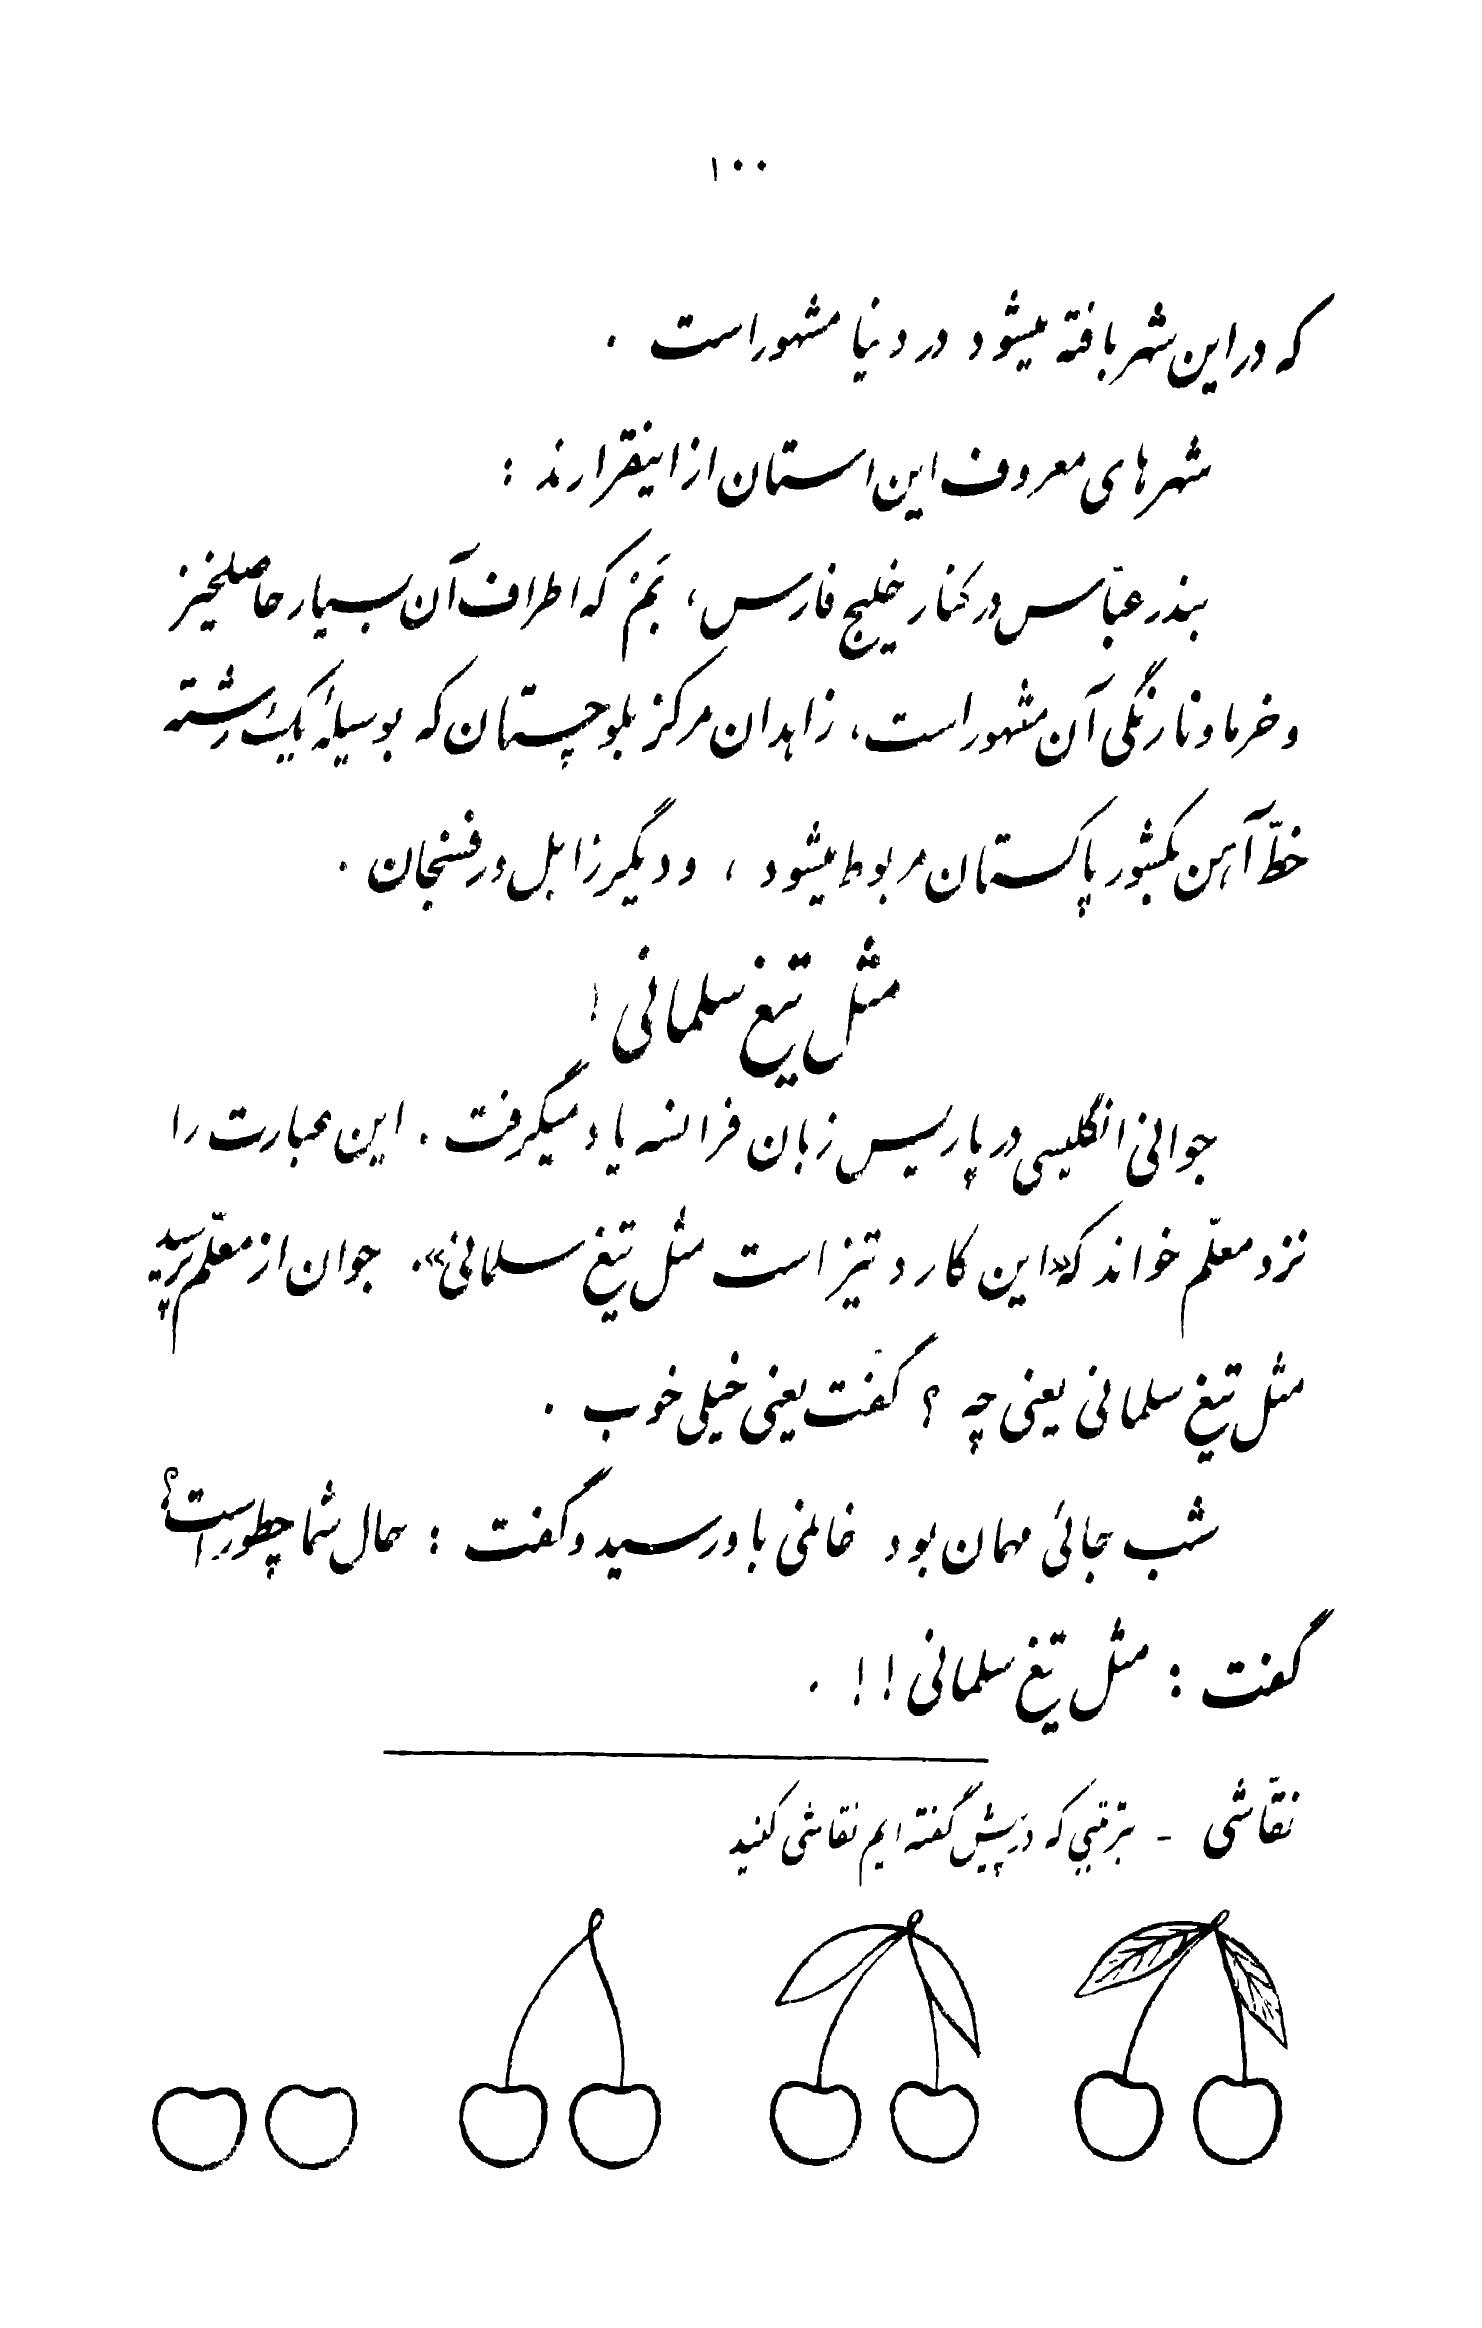 ۱۰۰
که در این شهر بافته میشود در دنیا مشهور است .
شهرهای معروف این استان از اینقرارند :
بندر عبّاس در کنار خلیج فارس، بَمْ که اطراف آن بسیار حاصلخیز
و خرما و نارنگی آن مشهور است، زاهدان مرکز بلوچستان که بوسیلهٔ یک رشته
خطّ آهن بکشور پاکستان مربوط میشود ، و دیگر زابل و رفسنجان .
مثل تیغ سلمانی !
جوانی انگلیسی در پاریس زبان فرانسه یاد میگرفت . این عبارت را
نزد معلّم خواند که «این کارد تیز است مثل تیغ سلمانی». جوان از معلّم پرسید
مثل تیغ سلمانی یعنی چه ؟ گفت یعنی خیلی خوب .
شب جائی مهمان بود خانمی باو رسید و گفت : حال شما چطور است؟
گفت : مثل تیغ سلمانی !! .
نقّاشی - بترتیبی که در پیش گفته ایم نقاشی کنید